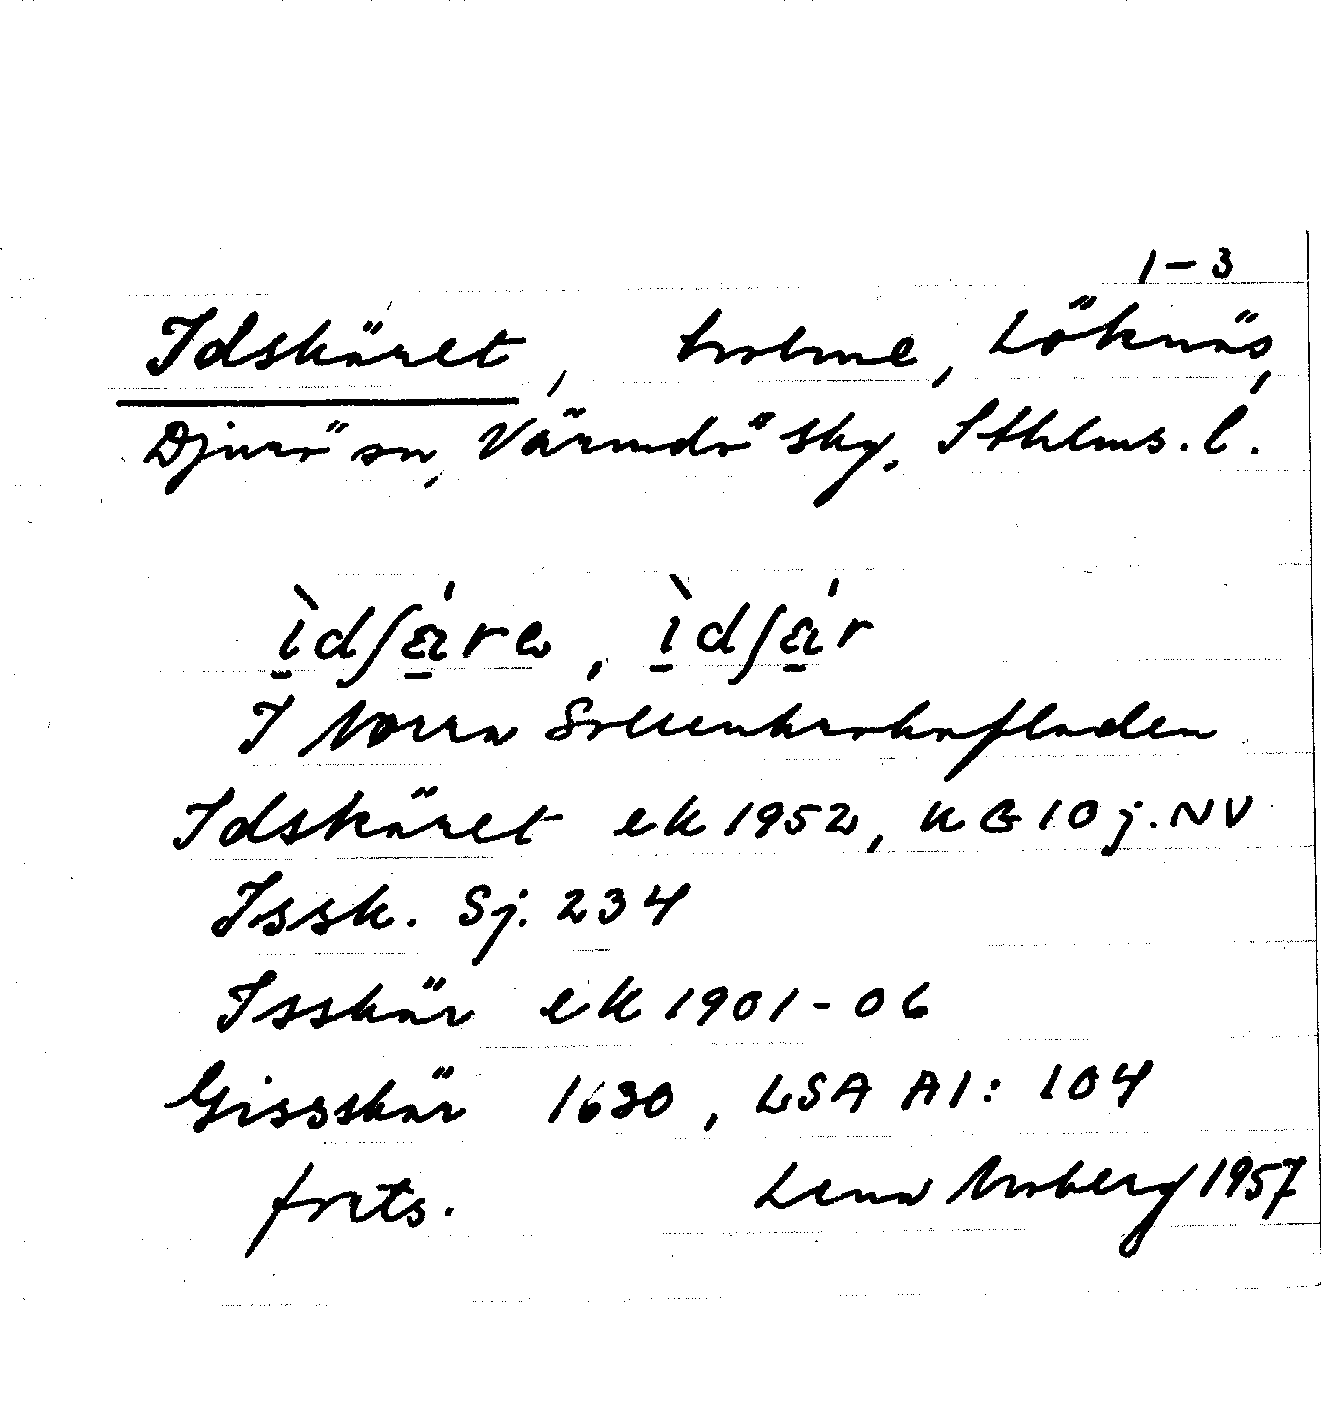 1-3
Idskäret, holme, Löknäs,
Djurö sn, Värmdö skg. Sthlms. l.
ìdʃä́ra, ìdʃä́r
I Norra Sollenkrokafladen
Idskäret ek 1952, KG 10 j. NV
Issk. Sj. 234
Isskär ek 1901-06
Gissskär 1630, LSA A1: 104
forts. Lena Moberg 1957